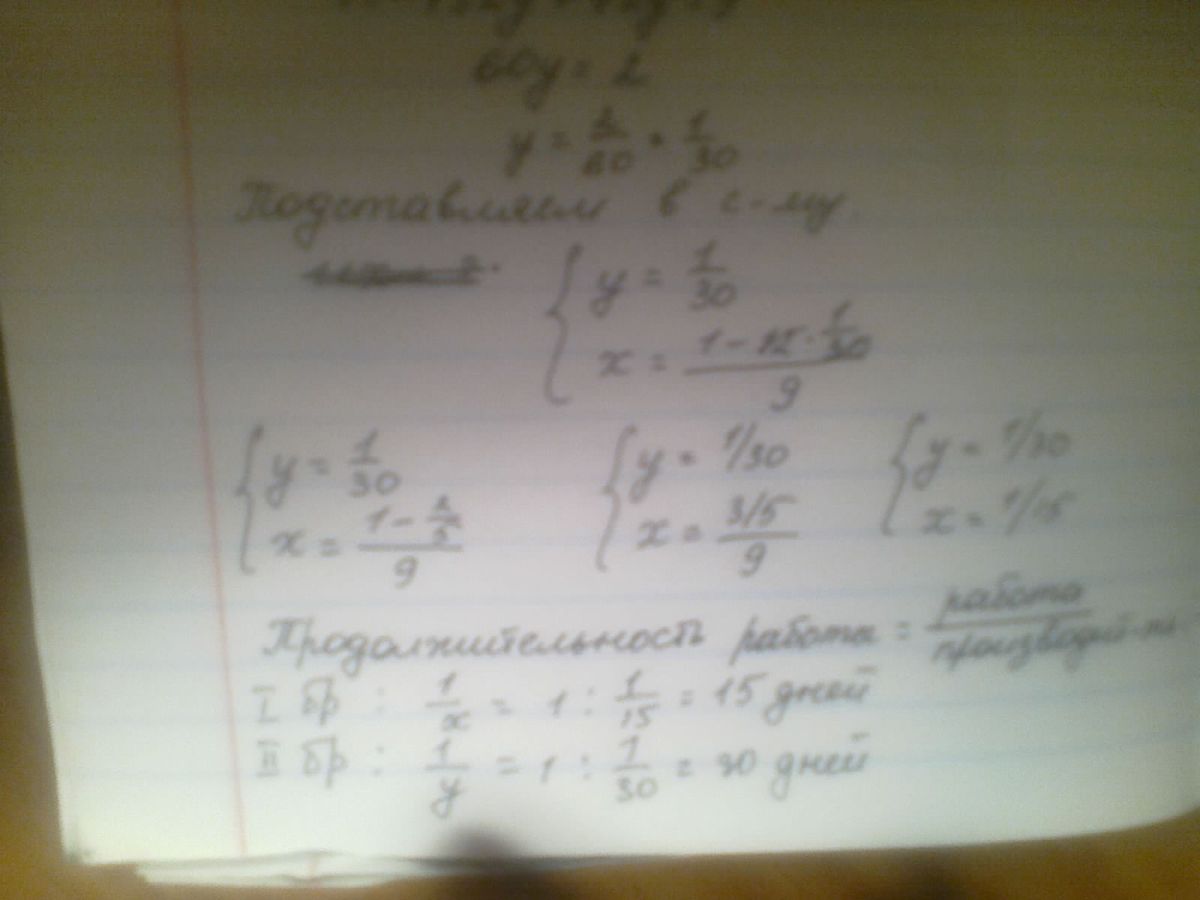 60y = 2
y = 2/60 = 1/30
Подставляем в с-му.
{ y = 1/30
x = (1 - 12 · 1/30)/9
{ y = 1/30 { y = 1/30 { y = 1/30
x = (1 - 2/5)/9 x = (3/5)/9 x = 1/15
Продолжительность работы = работа/производит-ть
I бр : 1/x = 1 : 1/15 = 15 дней
II бр : 1/y = 1 : 1/30 = 30 дней